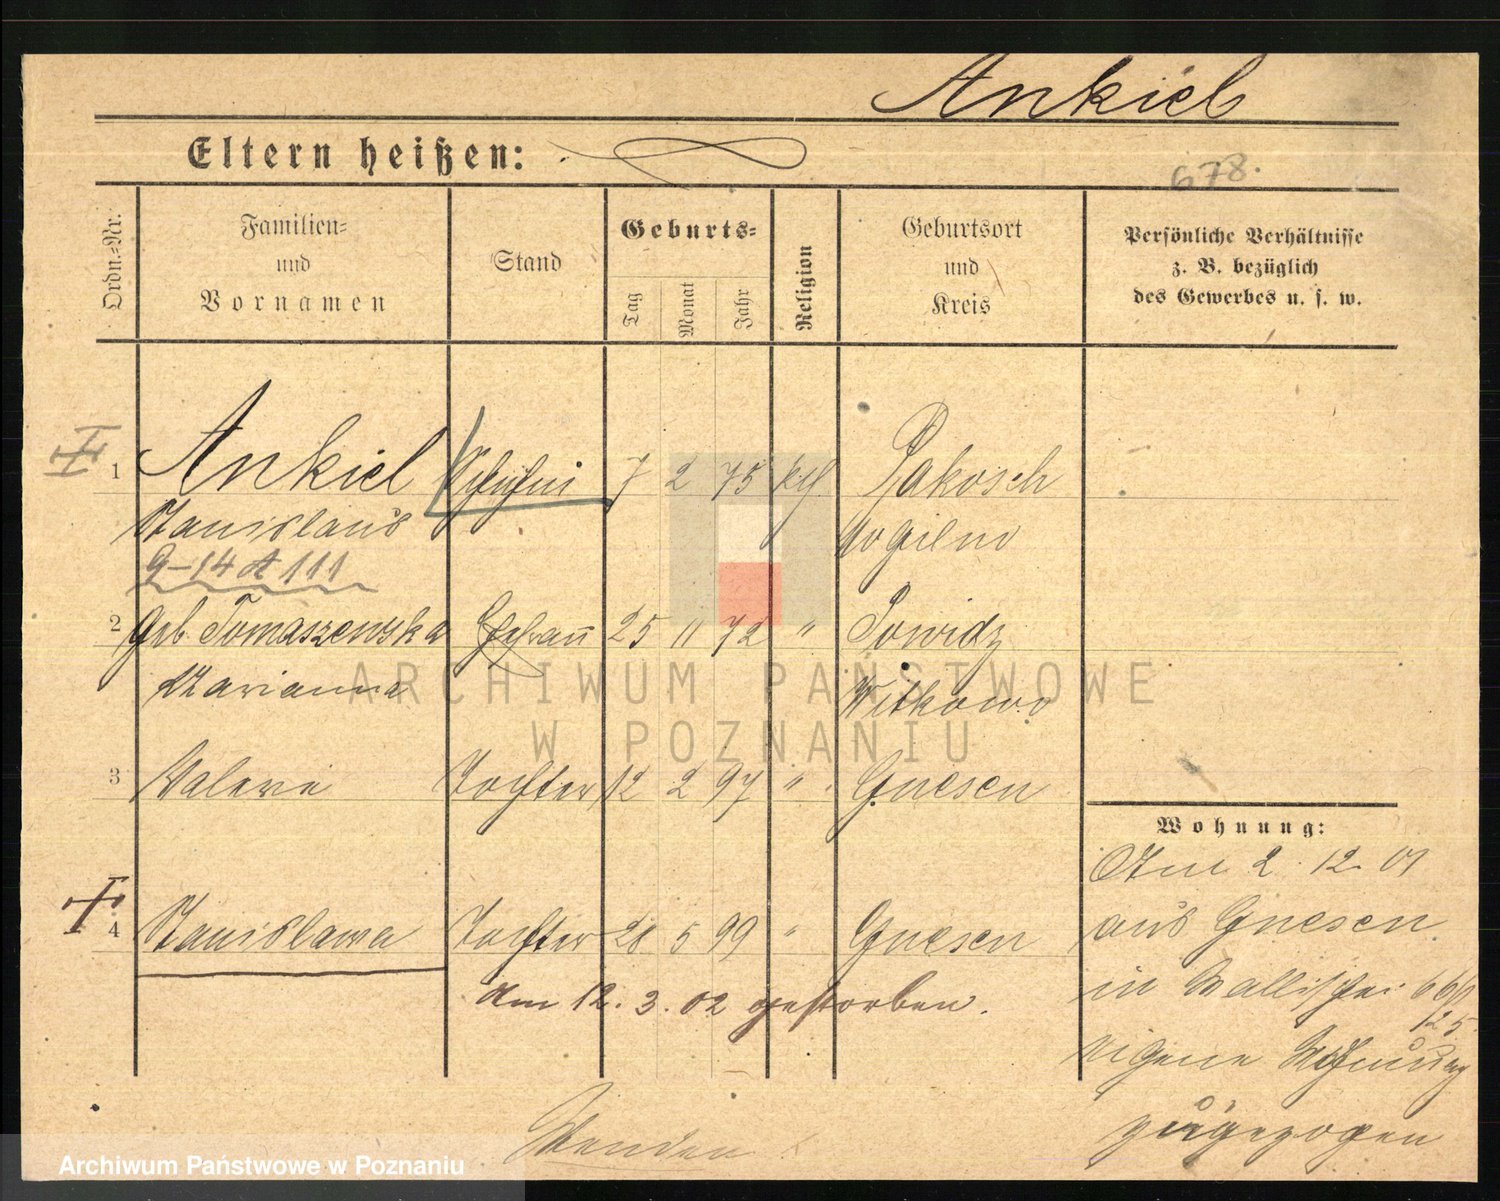 Ankiel
Eltern heißen:
678.
Ordn.-Nr.
Familien-
und
Vornamen
Stand
Geburts-
Tag
Monat
Jahr
Religion
Geburtsort
und
Kreis
Persönliche Verhältnisse
z. B. bezüglich
des Gewerbes u. s. w.
1 Ankiel 7 2 75 kth. Pakosch
Stanislaus Mogilno
9-14 A 111
2 geb Tomaszewska Ehefrau 25 11 72 " Powidz
Marianna Witkowo
3 Valeri Tochter 12 2 97 " Gnesen
4 Stanislawa Tochter 28 5 99 " Gnesen
am 12. 3. 02 gestorben.
Wohnung:
Am 2. 12. 01
aus Gnesen
in Wallischei 66/67
125
eigene Wohnung
zugezogen
Wenden
ARCHIWUM PAŃSTWOWE
W POZNANIU
Archiwum Państwowe w Poznaniu